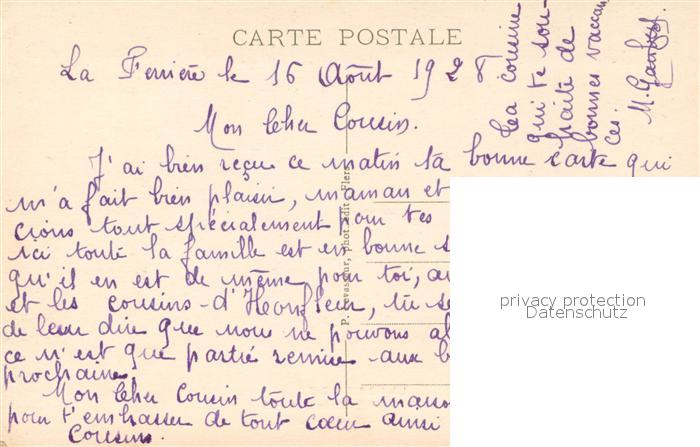 CARTE POSTALE
La Ferrière le 16 Août 1928
Mon Cher Cousin.
J'ai bien reçue ce matin ta bonne carte qui
m'a fait bien plaisir, maman et
cions tout spécialement pour tes
ici toute la famille est en bonne s
qu'il en est de même pour toi, au
et les cousins d'Honfleur, tu se
de leur dire que nous ne pouvons al
ce n'est que partié remise aux b
prochaine.
Mon Cher Cousin toute la maiso
pour t'embrasser de tout cœur ainsi
Cousins.
Ta cousine
qui te sou-
haite de
bonnes vaccan
ces.
M.
P. Levasseur, phot. édit. Flers
privacy protection
Datenschutz